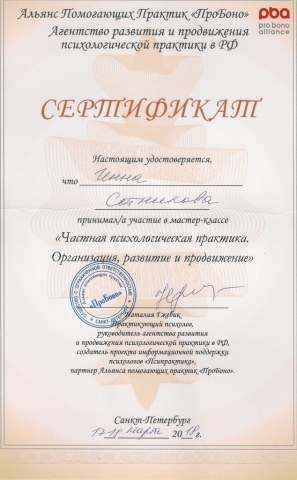 Альянс Помогающих Практик «ПроБоно»
Агентство развития и продвижения
психологической практики в РФ
pba
pro bono
alliance
СЕРТИФИКАТ
Настоящим удостоверяется,
что Инна
Сотникова
принимал/а участие в мастер-классе
«Частная психологическая практика.
Организация, развитие и продвижение»
«ПроБоно»
Наталия Ежевик
Практикующий психолог,
руководитель агентства развития
и продвижения психологической практики в РФ,
создатель проекта информационной поддержки
психологов «Псипрактика»,
партнер Альянса помогающих практик «ПроБоно».
Санкт-Петербург
марта 2018г.